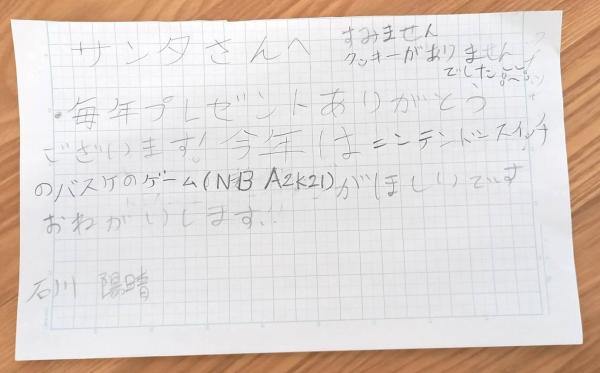 サンタさんへ
すみません
クッキーがありません
でした
・毎年プレゼントありがとう
ございます!今年はニンテンドースイッチ
のバスケのゲーム(NBA2K21)がほしいです
おねがいします!
石川 陽晴